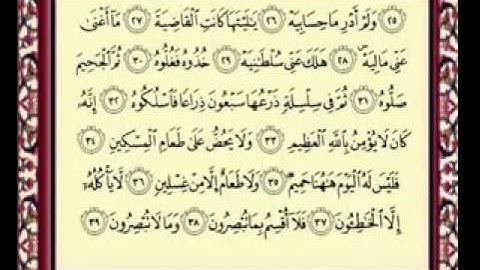 ٢٥ وَلَمْ أَدْرِ مَا حِسَابِيَهْ ٢٦ يَٰلَيْتَهَا كَانَتِ ٱلْقَاضِيَةَ ٢٧ مَآ أَغْنَىٰ
عَنِّى مَالِيَهْ ۜ ٢٨ هَلَكَ عَنِّى سُلْطَٰنِيَهْ ٢٩ خُذُوهُ فَغُلُّوهُ ٣٠ ثُمَّ ٱلْجَحِيمَ
صَلُّوهُ ٣١ ثُمَّ فِى سِلْسِلَةٍ ذَرْعُهَا سَبْعُونَ ذِرَاعًا فَٱسْلُكُوهُ ٣٢ إِنَّهُۥ
كَانَ لَا يُؤْمِنُ بِٱللَّهِ ٱلْعَظِيمِ ٣٣ وَلَا يَحُضُّ عَلَىٰ طَعَامِ ٱلْمِسْكِينِ ٣٤
فَلَيْسَ لَهُ ٱلْيَوْمَ هَٰهُنَا حَمِيمٌ ٣٥ وَلَا طَعَامٌ إِلَّا مِنْ غِسْلِينٍ ٣٦ لَّا يَأْكُلُهُۥٓ
إِلَّا ٱلْخَٰطِـُٔونَ ٣٧ فَلَآ أُقْسِمُ بِمَا تُبْصِرُونَ ٣٨ وَمَا لَا تُبْصِرُونَ ٣٩